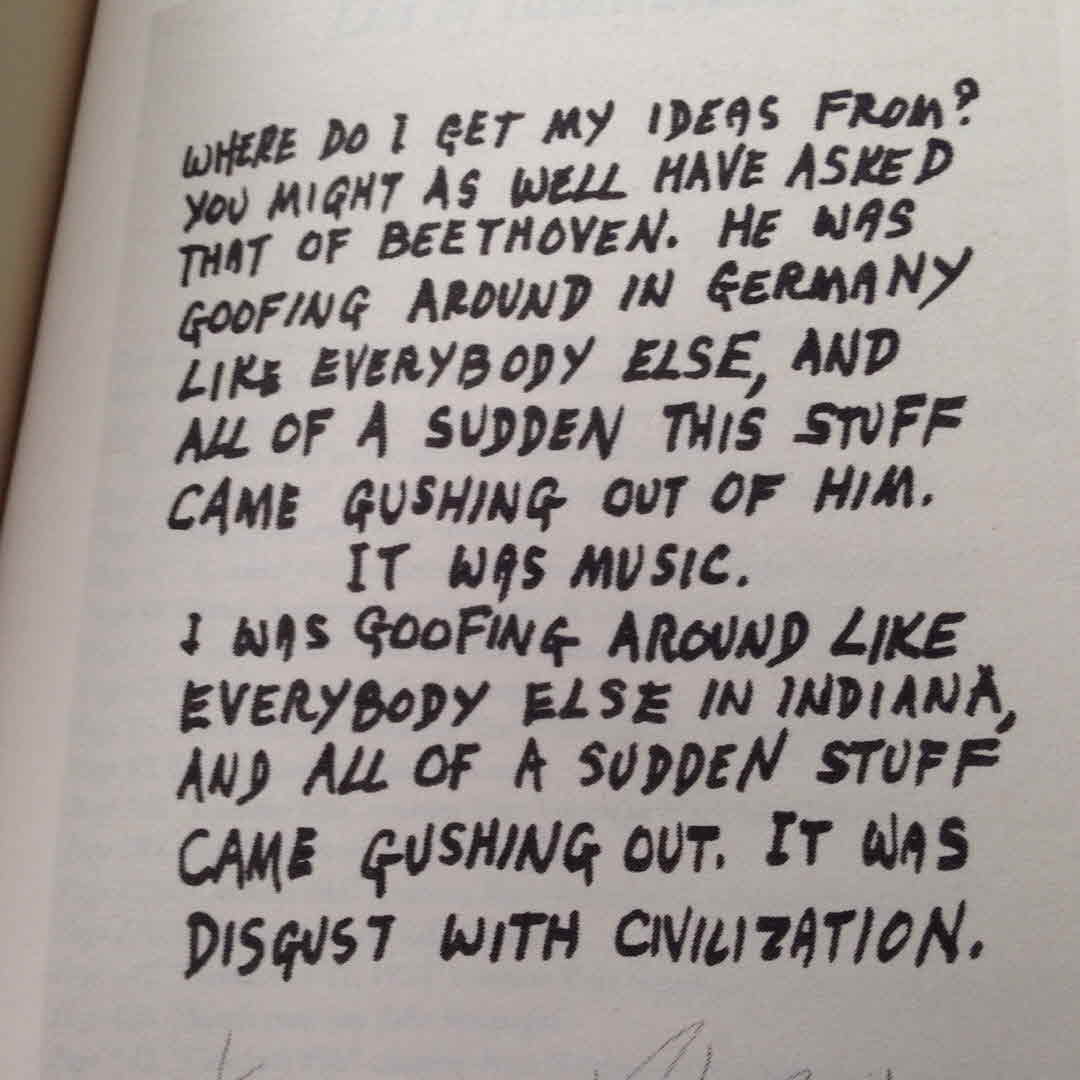 WHERE DO I GET MY IDEAS FROM?
YOU MIGHT AS WELL HAVE ASKED
THAT OF BEETHOVEN. HE WAS
GOOFING AROUND IN GERMANY
LIKE EVERYBODY ELSE, AND
ALL OF A SUDDEN THIS STUFF
CAME GUSHING OUT OF HIM.
IT WAS MUSIC.
I WAS GOOFING AROUND LIKE
EVERYBODY ELSE IN INDIANA,
AND ALL OF A SUDDEN STUFF
CAME GUSHING OUT. IT WAS
DISGUST WITH CIVILIZATION.